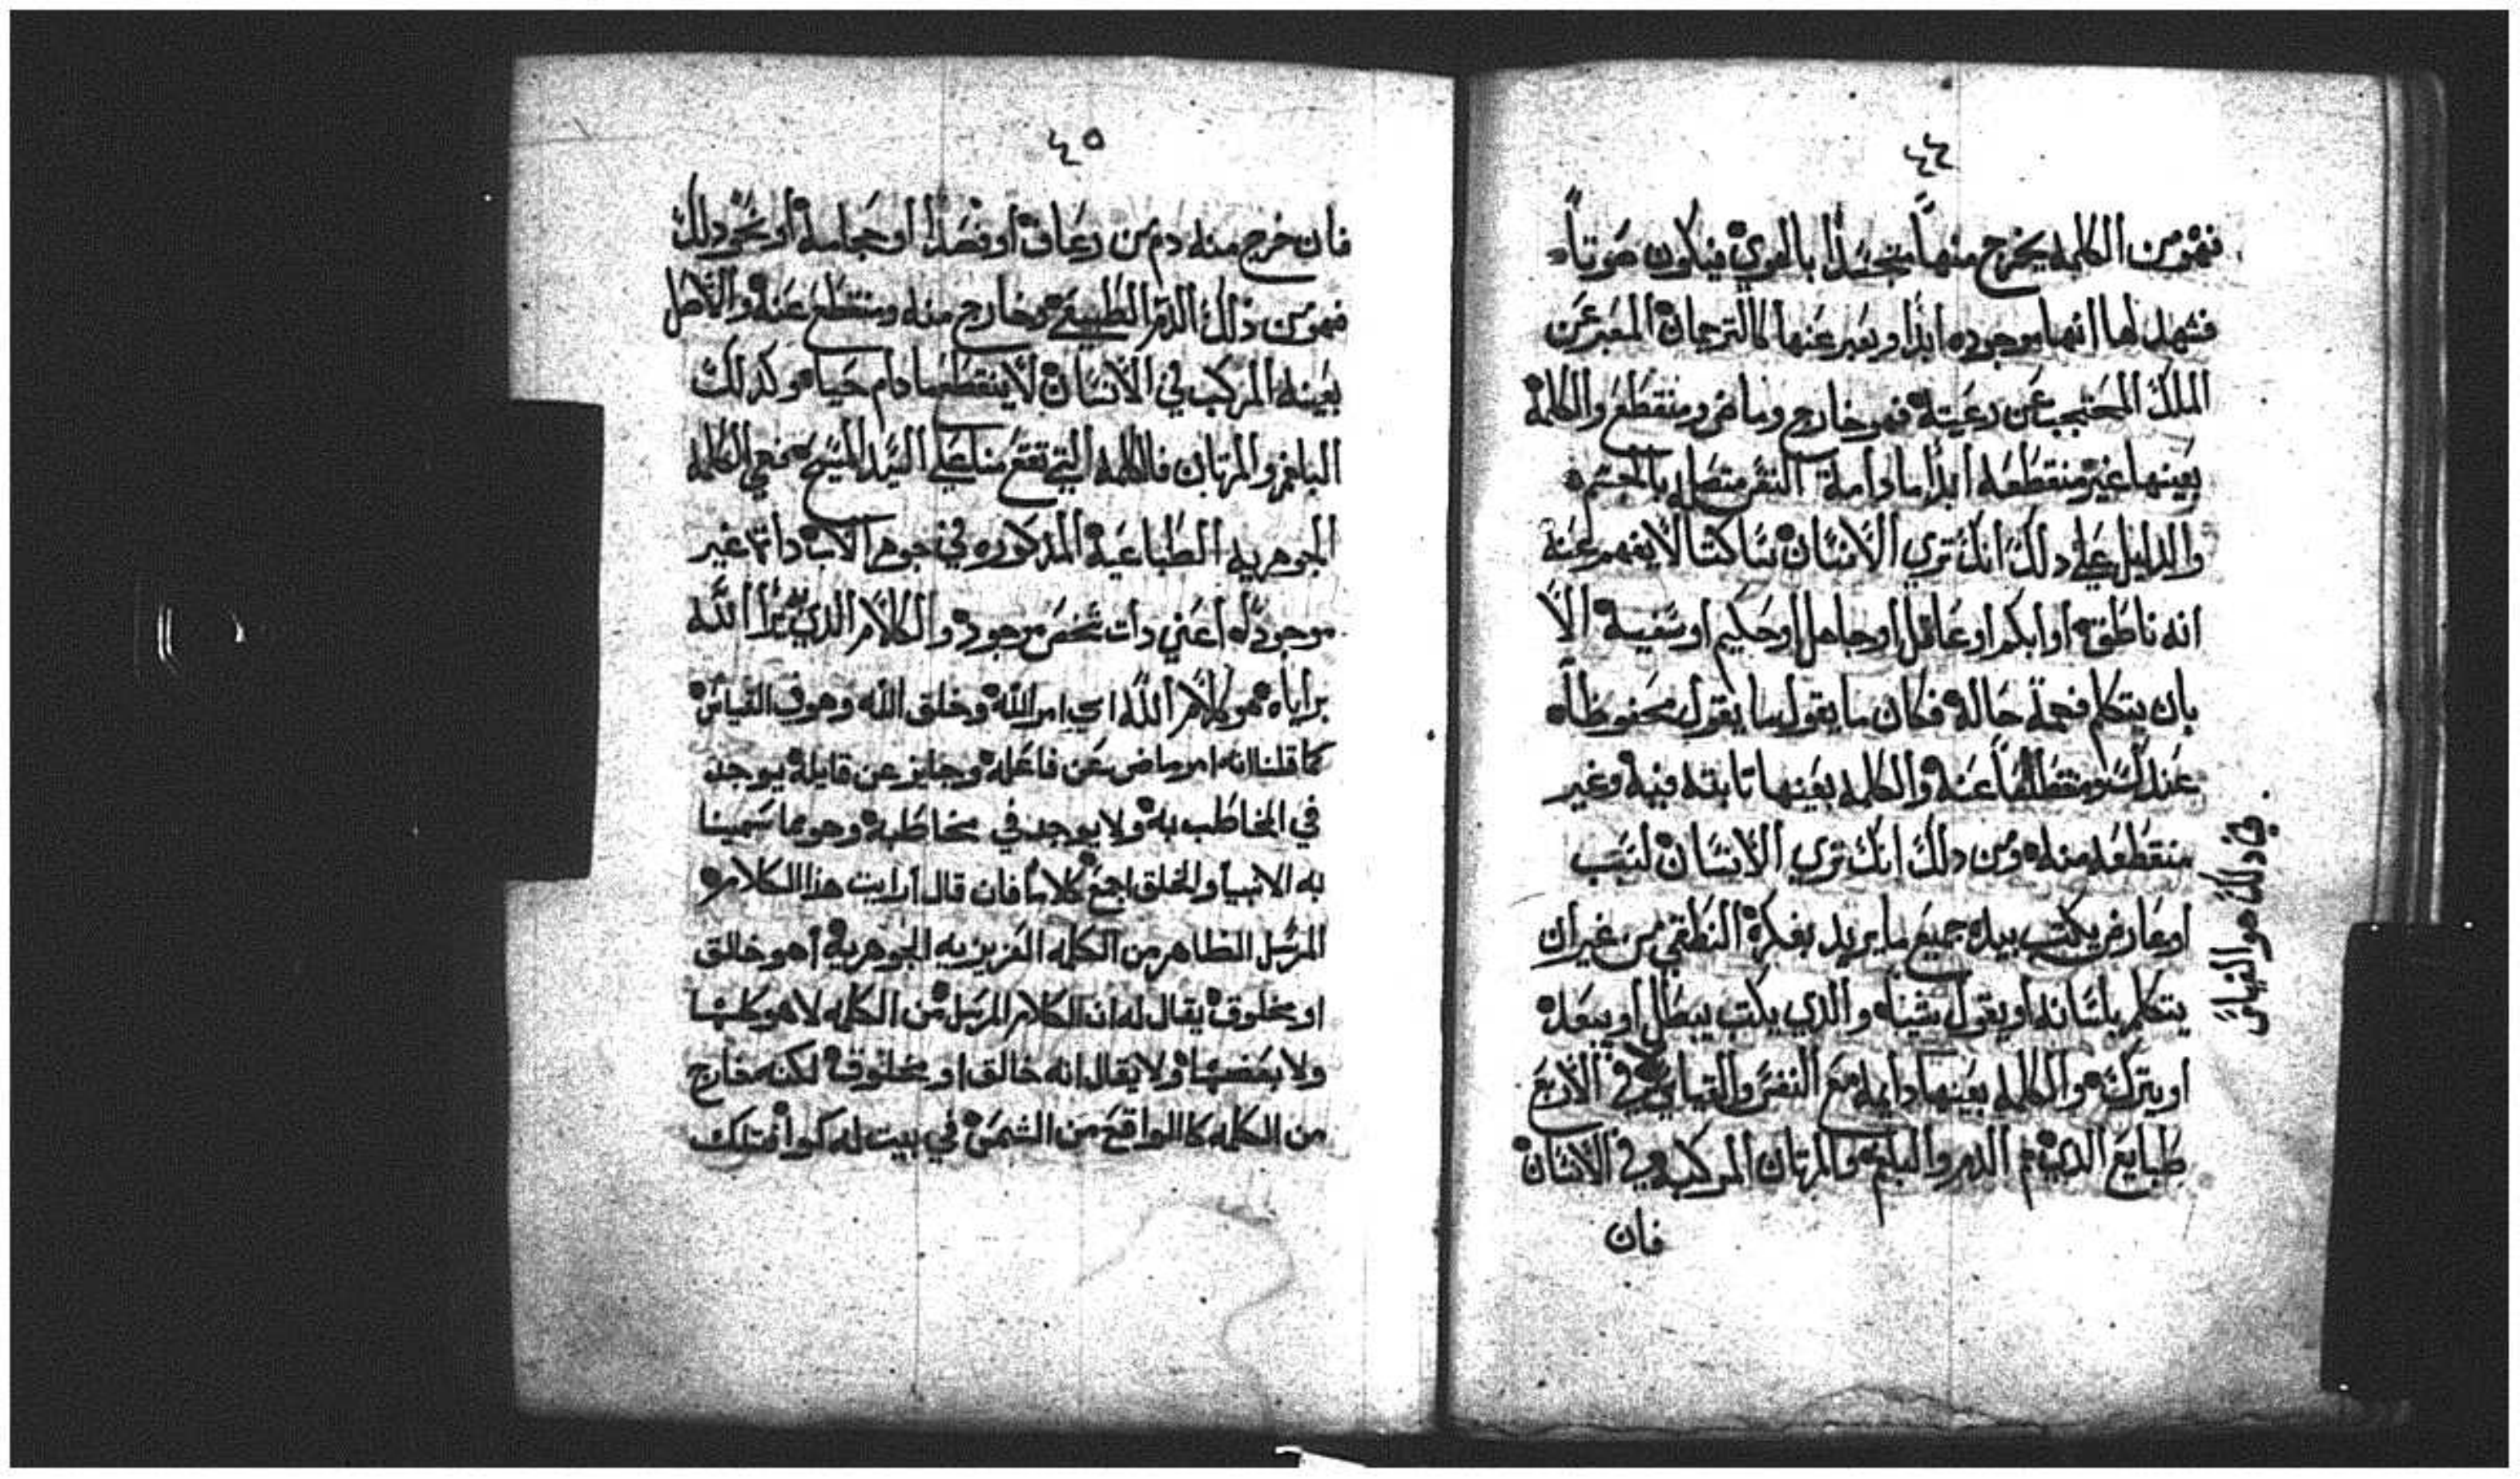 ٤٤
فهو من الكلمه يخرج منها متجسدا بالهوي فيكون صوتاً
فشهد لها انها موجوده ابدا ويعبر عنها كالترجمان المعبر عن
الملك المحتجب عن رعيته فهو خارج وماض ومنقطع والكلمة
بعينها غير منقطعه ابدا ما دامة النفس متصله بالجسم
والدليل علي دلك انك تري الانسان ساكتا لا يفهم عنه
انه ناطق او ابكم او عاقل او جاهل او حكيم او سفيه الا
بان يتكلم فحمة حاله فكان ما يقول ما يقول محفوظا
عند ومنقطعا عنه والكلمه بعينها تابته فيه وغير
منقطعه منه ومن دلك انك تري الانسان لبيب
او عارف يكتب بيده جميع ما يريد بفكرة النطقي من غير ان
يتكلم بلسانه او يقول شيئا والدي يكتب يبطل او يبعد
او يترك والكلمه بعينها دايمه مع النفس والقياس في الاربع
طبايع الدم والبلغم والمرتان المركبه في الانسان
فان
في دلك هو القياس
٤٥
فان خرج منه دم من رعاف او فصد او حجامة او نحو دلك
فهو من ذلك الدم الطبيعي خارج منه ومنقطع عنه والاصل
بعينه المركب في الانسان لا ينقطع ما دام حياه وكدلك
البلغم والمرتان فالكلمه التي تقع منا علي السيد المسيح فهي الكلمه
الجوهريه الطباعية المدكوره في جوهر الاب داتها غير
موجوده اعني دات شخص موجود والكلام الدي برا الله
براياه هو كلام الله اي امر الله وخلق الله وهو في القياس
كما قلنا انه امر ماض عن فاعله وجايز عن قايله يوجد
في المخاطب به ولا يوجد في مخاطبه وهو مما سمينا
به الانبيا والخلق اجمع كلاما فان قال ارايت هذا الكلام
المرسل الظاهر من الكلمه الغريزيه الجوهرية أهو خالق
او مخلوق يقال له ان الكلام المرسل من الكلمه لا هو كلها
ولا بعضها ولا يقال انه خالق او مخلوق لكنه خارج
من الكلمه كالواقع من الشمس في بيت له كوا فتلك